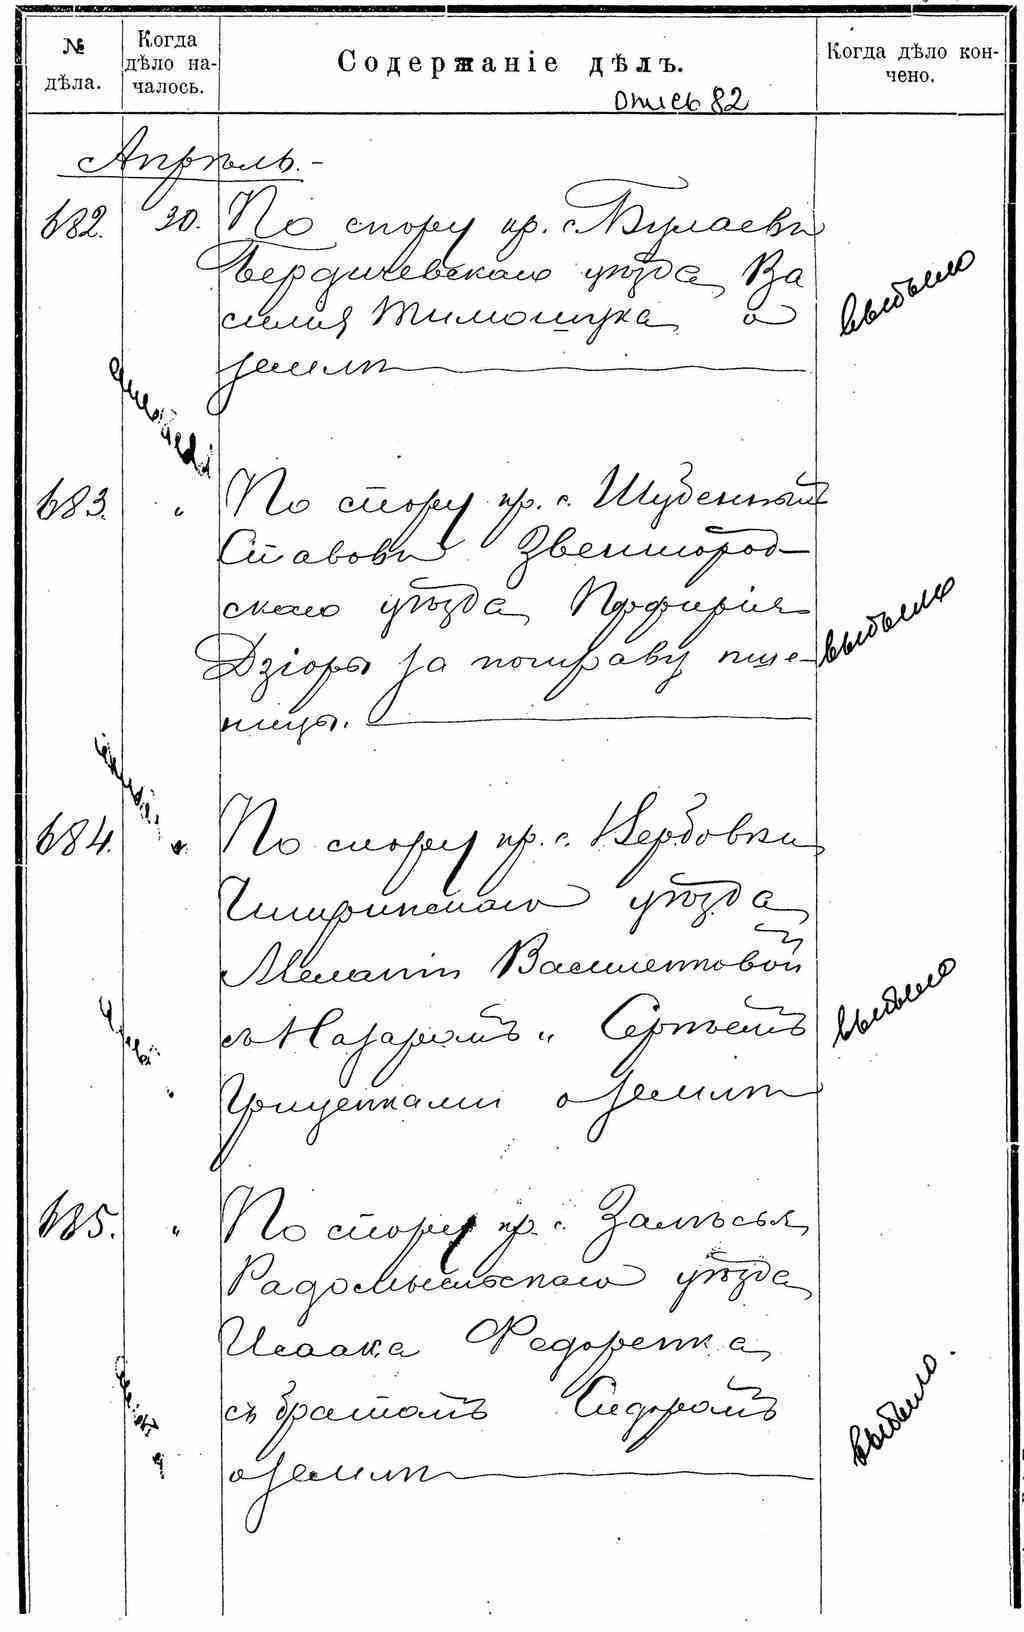 № дѣла.
Когда дѣло на-
чалось.
Содержаніе дѣлъ.
Когда дѣло кон-
чено.
опись 82
Апрѣль.-
682. 30. По спору кр. с. Булаевки
Бердичевскаго уѣзда Ва
силия Тимощука о
землѣ
выбыло
683. " По спору кр. с. Шубенный
Ставовъ Звенигород-
скаго уѣзда Порфирія
Дзіоры за потраву пше-
ницы.
выбыло
684. " По спору кр. с. Вербовки
Чигиринскаго уѣзда
Меланіи Василенковой
съ Назаромъ и Сергѣемъ
" Гриценками о землѣ
выбыло
685. " По спору кр. с. Залѣсья
Радомысльскаго уѣзда
Исаака Федоренка
съ братомъ Сидоромъ
о землѣ
выбыло.